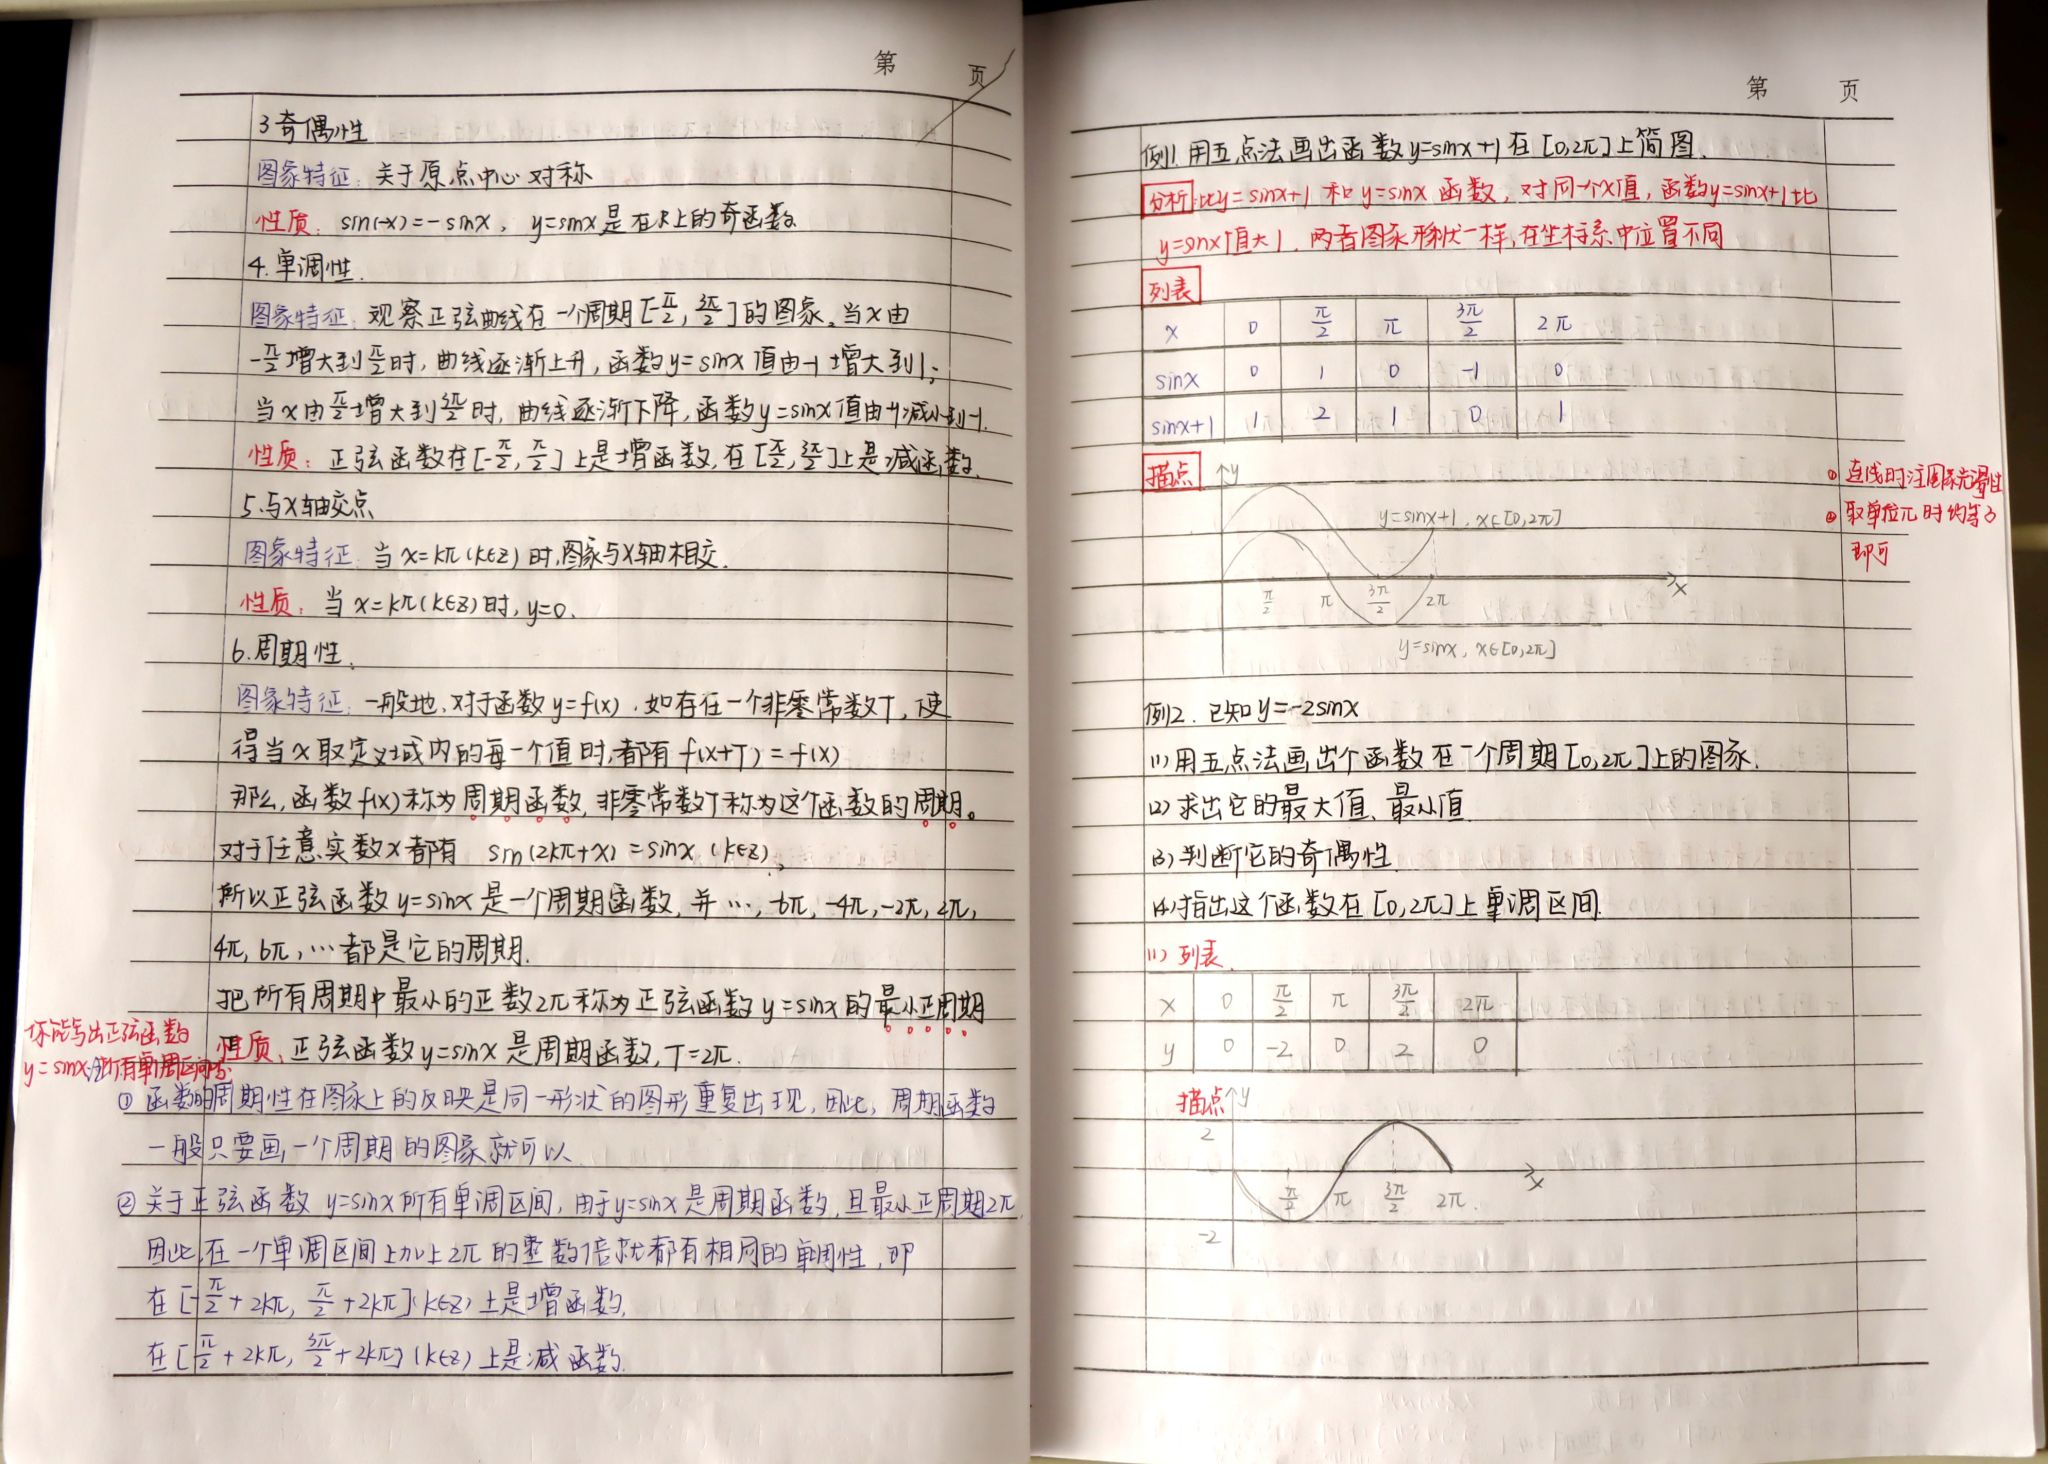 第 页
3 奇偶性
图象特征:关于原点中心对称
性质:sin(-x)=-sinx,y=sinx是在R上的奇函数
4.单调性.
图象特征:观察正弦曲线在一个周期[-π/2, 3π/2]的图象。当x由
-π/2增大到π/2时,曲线逐渐上升,函数y=sinx值由-1增大到1;
当x由π/2增大到3π/2时,曲线逐渐下降,函数y=sinx值由 减小到-1.
性质:正弦函数在[-π/2, π/2]上是增函数,在[π/2, 3π/2]上是减函数.
5.与x轴交点
图象特征:当x=kπ(k∈Z)时,图象与x轴相交.
性质:当x=kπ(k∈Z)时,y=0.
6.周期性.
图象特征:一般地,对于函数y=f(x),如存在一个非零常数T,使
得当x取定义域内的每一个值时,都有f(x+T)=f(x)
那么,函数f(x)称为周期函数,非零常数T称为这个函数的周期。
对于任意实数x都有 sin(2kπ+x)=sinx(k∈Z),
所以正弦函数y=sinx是一个周期函数,并…,-6π,-4π,-2π,2π,
4π,6π,…都是它的周期.
把所有周期中最小的正数2π称为正弦函数y=sinx的最小正周期
性质:正弦函数y=sinx是周期函数,T=2π.
你能写出正弦函数
y=sinx 所有单调区间吗
① 函数的周期性在图象上的反映是同一形状的图形重复出现,因此,周期函数
一般只要画一个周期的图象就可以
② 关于正弦函数 y=sinx所有单调区间,由于y=sinx是周期函数,且最小正周期2π,
因此,在一个单调区间上加上2π的整数倍就都有相同的单调性,即
在[-π/2+2kπ, π/2+2kπ](k∈Z)上是增函数,
在[π/2+2kπ, 3π/2+2kπ](k∈Z)上是减函数.
第 页
例1.用五点法画出函数y=sinx+1在[0,2π]上简图.
分析:比y=sinx+1 和y=sinx函数,对同一个x值,函数y=sinx+1比
y=sinx值大1,两者图象形状一样,在坐标系中位置不同
列表
x 0 π/2 π 3π/2 2π
sinx 0 1 0 -1 0
sinx+1 1 2 1 0 1
描点 y
y=sinx+1,x∈[0,2π]
π/2 π 3π/2 2π x
y=sinx,x∈[0,2π]
① 连线时注 图象光滑性
② 取单位π时约等3
即可
例2.已知y=-2sinx
(1)用五点法画出个函数在一个周期[0,2π]上的图象.
(2)求出它的最大值、最小值
(3)判断它的奇偶性.
(4)指出这个函数在[0,2π]上单调区间.
(1)列表.
x 0 π/2 π 3π/2 2π
y 0 -2 0 2 0
描点 y
2
0
π/2 π 3π/2 2π. x
-2